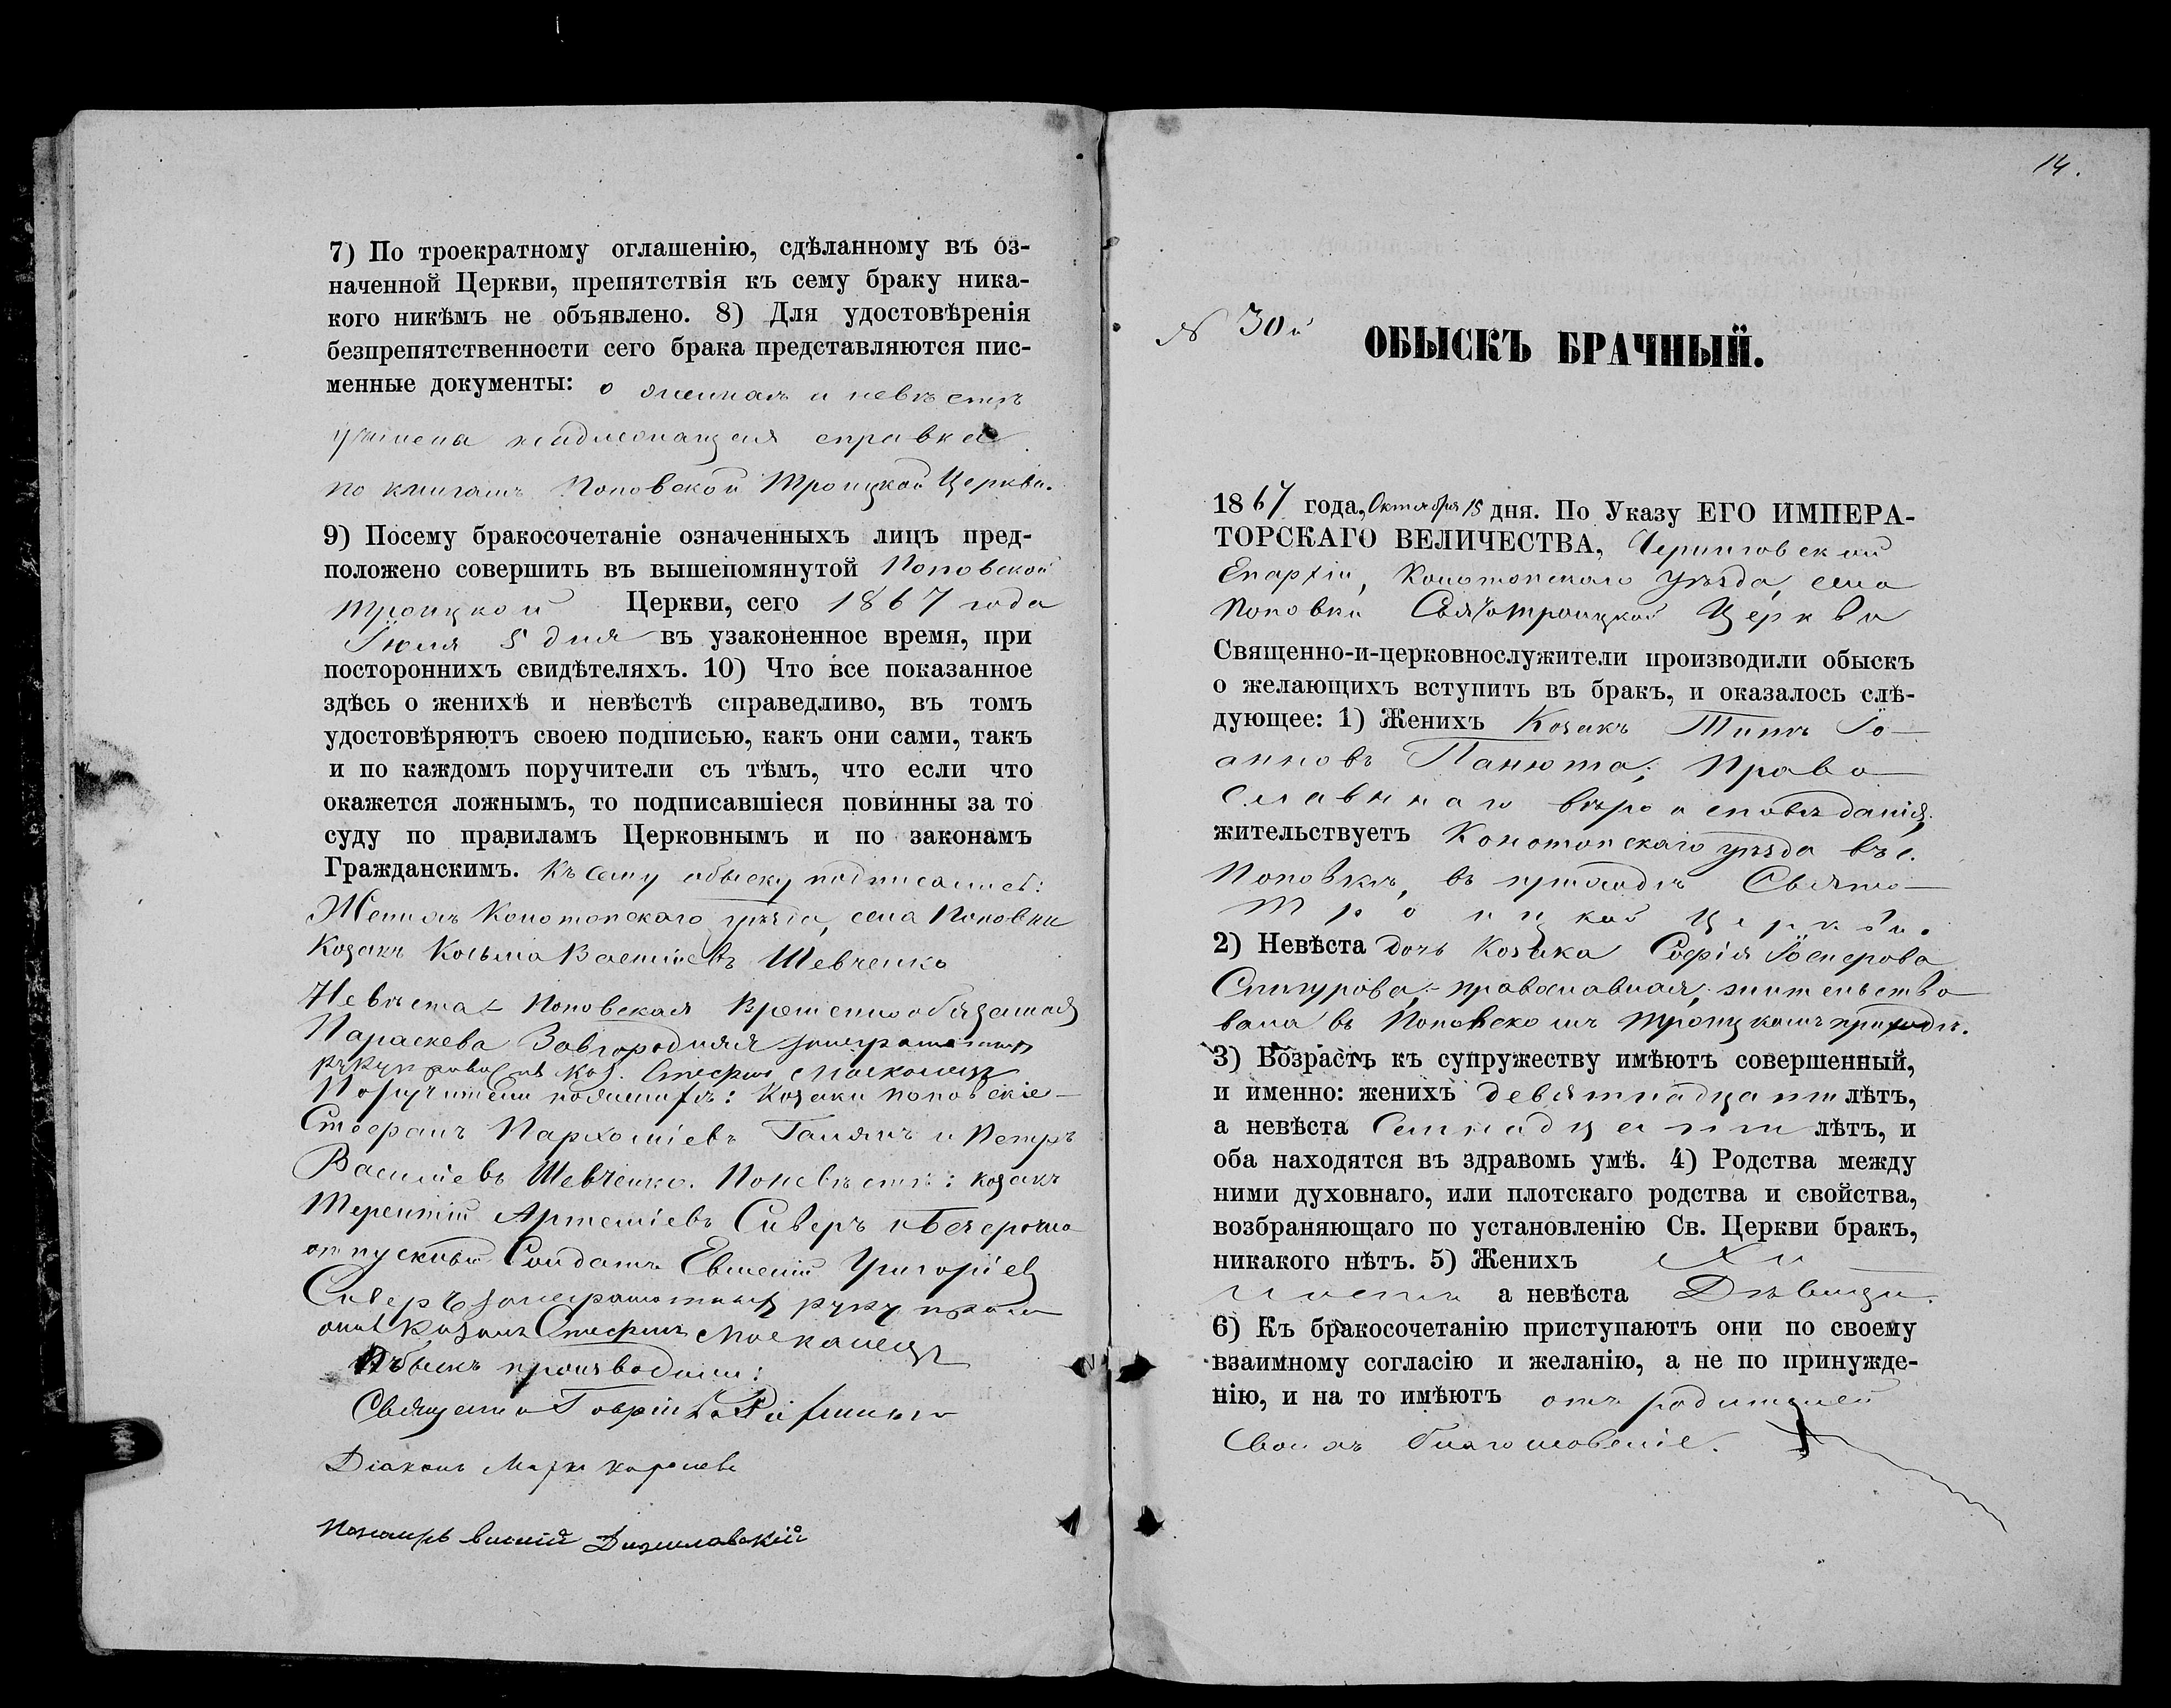 7) По троекратному оглашенію, сдѣланному въ оз-
наченной Церкви, препятствія къ сему браку ника-
кого никѣмъ не объявлено. 8) Для удостовѣренія
безпрепятственности сего брака представляются пис-
менные документы: о женихѣ и невѣстѣ
учинена надлежащея справка
по книгамъ Поповской Троицкой Церкви.
9) Посему бракосочетаніе означенныхъ лицъ пред-
положено совершить въ вышепомянутой Поповской
Троицкой Церкви, сего 1867 года
Іюля 5 дня въ узаконенное время, при
постороннихъ свидѣтеляхъ. 10) Что все показанное
здѣсь о женихѣ и невѣстѣ справедливо, въ томъ
удостовѣряютъ своею подписью, какъ они сами, такъ
и по каждомъ поручители съ тѣмъ, что если что
окажется ложнымъ, то подписавшіеся повинны за то
суду по правиламъ Церковнымъ и по законамъ
Гражданскимъ. Къ сему обыску подписались:
Женихъ Конотопскаго уѣзда, села Поповки
Козакъ Косьма Васильевъ Шевченко
Невѣста Поповская Временно обязанная
Параскева Завгородняя
Коз. Стефанъ Москалецъ
Поручители по женихѣ: Козаки Поповскіе
Стефанъ Пархоміевъ и Петръ
Васильевъ Шевченко. По невѣстѣ: козакъ
Терентій Артеміевъ Сиверъ и Безсрочно
отпускный Солдатъ Евменій Григоріевъ
Сиверъ руку
Козакъ Стефанъ Москалецъ
Обыскъ производили:
Священно
Діаконъ
Пономарь
14.
№ 30й
ОБЫСКЪ БРАЧНЫЙ.
1867 года, Октября 15 дня. По Указу ЕГО ИМПЕРА-
ТОРСКАГО ВЕЛИЧЕСТВА, Черниговской
Епархіи, Конотопскаго уѣзда, села
Поповки Святотроицкой Церкви
Священно-и-церковнослужители производили обыскъ
о желающихъ вступить въ бракъ, и оказалось слѣ-
дующее: 1) Женихъ Козакъ Титъ Іо-
анновъ Панюта; Право
славнаго вѣроисповѣданія,
жительствуетъ Конотопскаго уѣзда въ с.
Поповкѣ, въ приходѣ Свято-
Троицкой Церкви.
2) Невѣста дочь Козака Софія
православная, жительство
вала въ Поповскомъ Троицкомъ приходѣ.
3) Возрастъ къ супружеству имѣютъ совершенный,
и именно: женихъ девятнадцати лѣтъ,
а невѣста Семнадцати лѣтъ, и
оба находятся въ здравомъ умѣ. 4) Родства между
ними духовнаго, или плотскаго родства и свойства,
возбраняющаго по установленію Св. Церкви бракъ,
никакого нѣтъ. 5) Женихъ Хо
лостъ а невѣста Дѣвица.
6) Къ бракосочетанію приступаютъ они по своему
взаимному согласію и желанію, а не по принужде-
нію, и на то имѣютъ отъ родителей
своихъ благословеніе.